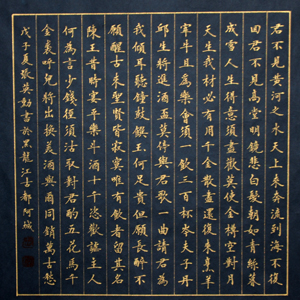 君不見黃河之水天上來奔流到海不復
回君不見高堂明鏡悲白髮朝如青絲暮
成雪人生得意須盡歡莫使金樽空對月
天生我材必有用千金散盡還復來烹羊
宰牛且為樂會須一飲三百杯岑夫子丹
邱生將進酒盃莫停與君歌一曲請君為
我傾耳聽鐘鼓饌玉何足貴但願長醉不
願醒古來聖賢皆寂寞唯有飲者留其名
陳王昔時宴平樂斗酒十千恣歡謔主人
何為言少錢徑須沽取對君酌五花馬千
金裘呼兒將出換美酒與爾同銷萬古愁
戊子夏張英勛書於黑龍江古都阿城